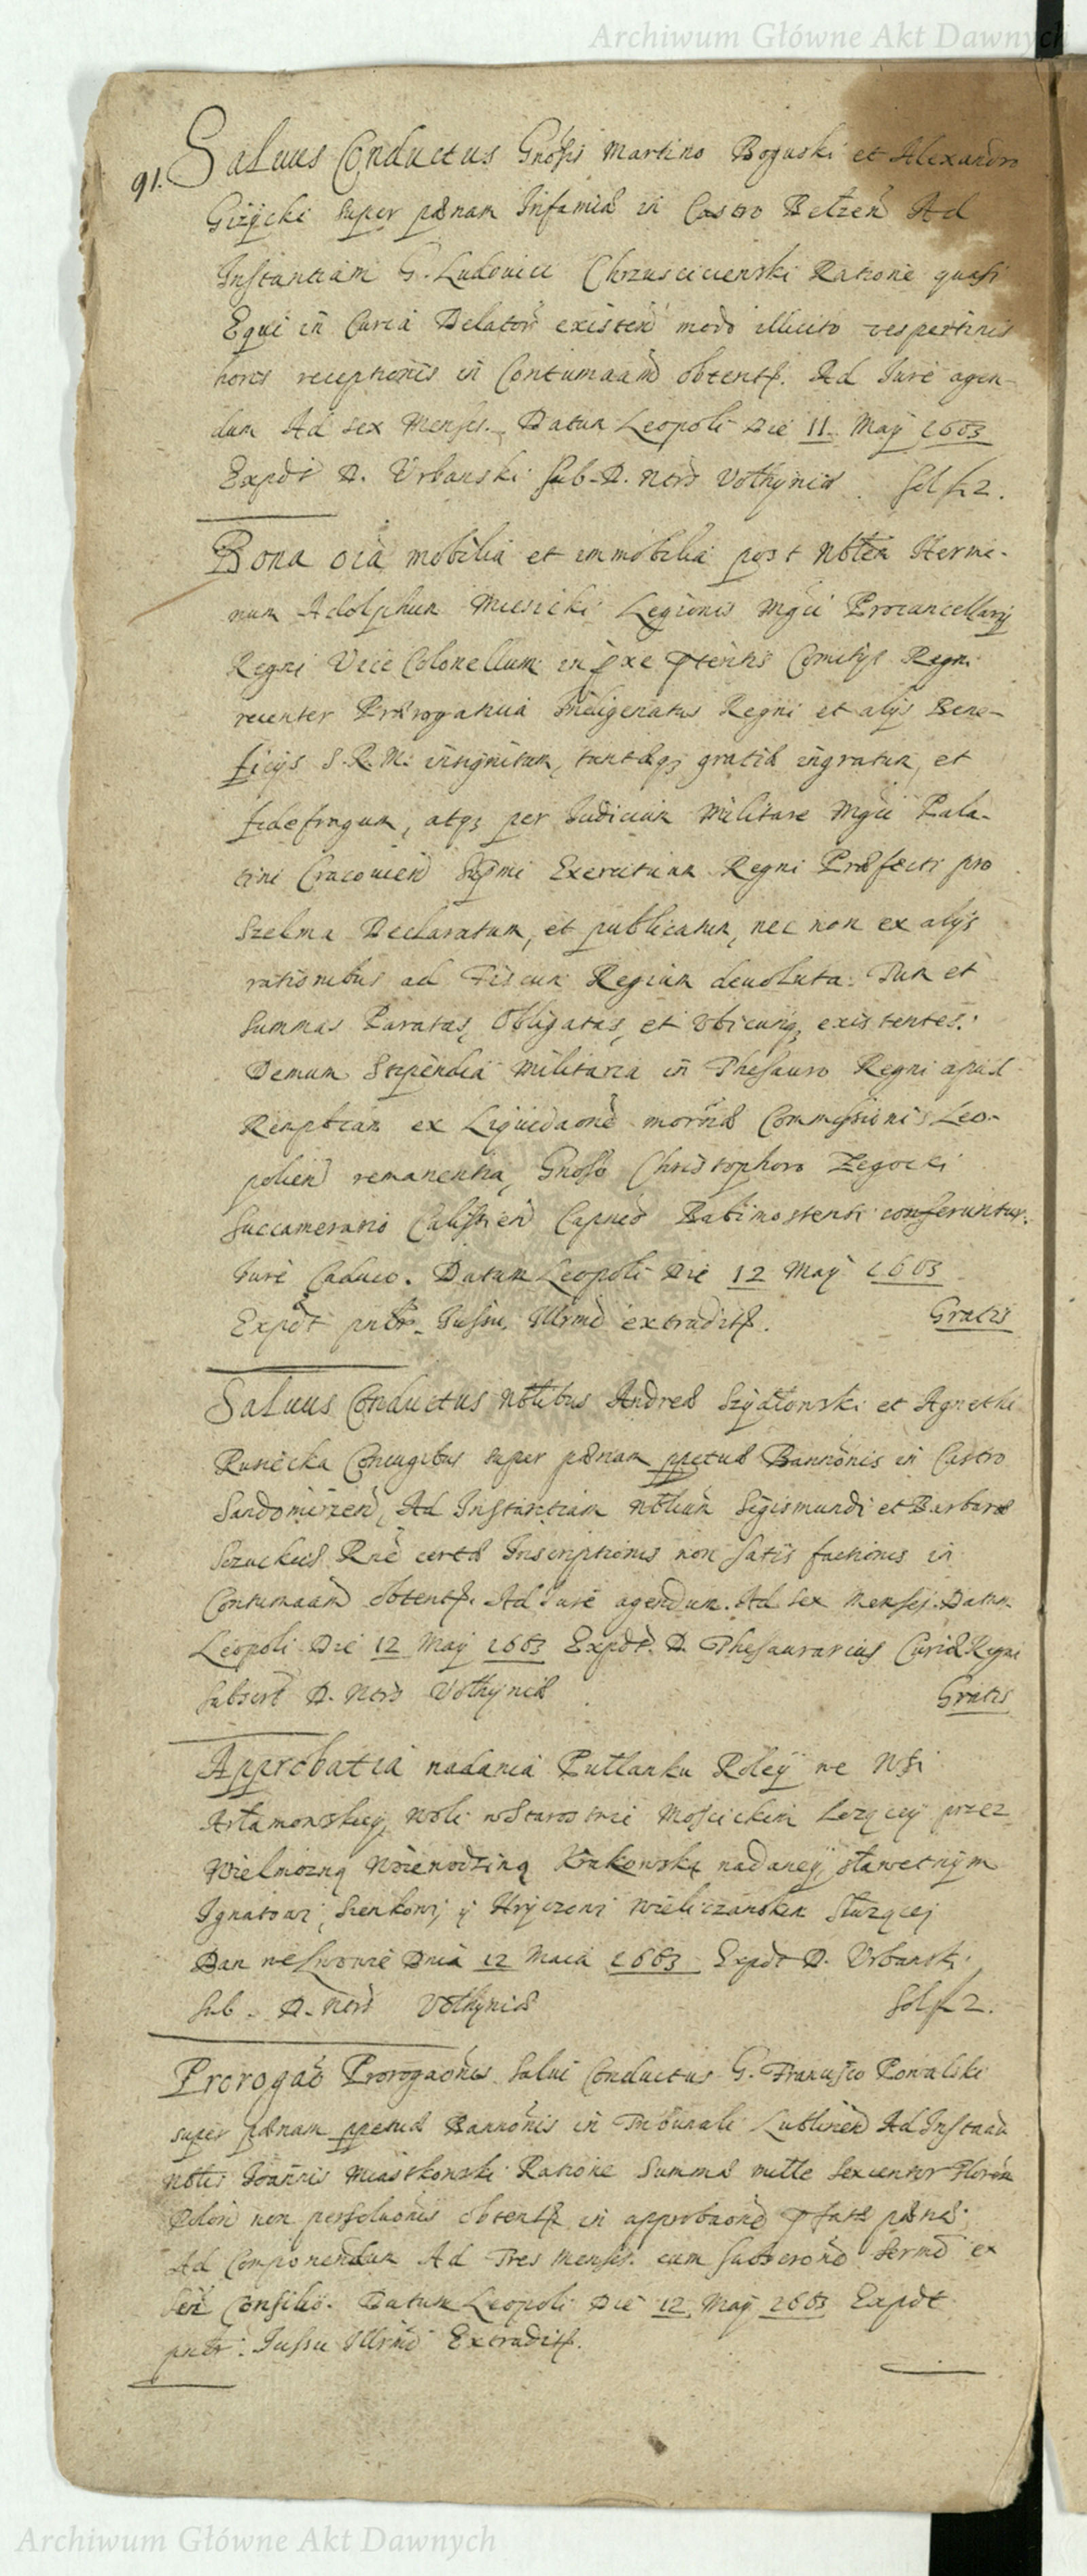 Archiwum Główne Akt Dawnych
91. Saluus Conductus Gnosis Martino Boguski et Alexandro
Giżycki super pænam Infamiæ in Castro Bełzen Ad
Instantiam G. Ludovici Chrzuscicienski Ratione quasi
Equi in Curia Delatoris existen modo illicito vespertinis
horis receptionis in Contumaam obtent. Ad Iure agen-
dum Ad sex Menses. Datum Leopoli Die 11 May 1663
Expdt D. Urbanski Sub. D. Nots Volhyniæ. Sol f 2.
Bona oia mobilia et immobilia post Nblem Herma-
num Adolphum Miesicki Legionis Mgci Procancellarij
Regni Vice Colonellum in pxe pteritis Comitijs Regni
recenter Prærogatiua Indigenatus Regni et alijs Bene-
ficijs S.R.M. insignitum, tantæq gratiæ ingratum, et
fidefragum, atq per Iudicium Militare Mgci Pala-
tini Cracovien Supmi Exercituum Regni Præfecti pro
Szelma Declaratum, et publicatum, nec non ex alijs
rationibus ad Fiscum Regium deuoluta. Tum et
Summas Paratas, Obligatas, et Vbicunq existentes.
Demum Stipendia Militaria in Thesauro Regni apud
Remptiam ex Liquidaone Commissionis Leo-
polien remanentia, Gnoso Christophoro Żegocki
Succamerario Calissien Capneo Babimostensi conferuntur.
Iure Caduco. Datum Leopoli Die 12 May 1663
Expdt pntr. Jussu Illrmi extradit. Gratis
Saluus Conductus Nblibus Andreæ Szydłowski et Agnethi
Rusiecka Coniugibus super pænam ppetuæ Bannonis in Castro
Sandomirien, Ad Instantiam Nblium Sigismundi et Barbaræ
Rne certæ Inscriptionis non satis factionis in
Contumaam obtent. Ad Iure agendum. Ad sex Menses. Datum
Leopoli Die 12 May 1663 Expdt. D. Thesaurarius Curiæ Regni
Subscrt D. Nots Volhyniæ Gratis
Approbatia nadania Pułlanku Roley we Wsi
Artamowskiey Woli w Starostwie Mościckim Lezącey przez
Wielmozną Woiewodziną Krakowską nadaney, sławetnym
Ignatowi, Sienkowi, y Hryczowi Służącej
Dan we Lwowie Dnia 12 Maia 1663 Expdt D. Urbanski
Sub. D. Nots Volhyniæ Sol f 2.
Prorogao Prorogaonis Salui Conductus G. Francisco Kowalski
super pænam ppetuæ Bannonis in Tribunali Lublinen Ad Instaam
Nblis Ioannis Miastkowski Ratione Summæ mille sexcentor Floren
Polon non persoluonis obtent in approbaone pfatæ pænæ.
Ad Componendum Ad Tres Menses. cum Subscrone Sermi ex
Sen Consilio. Datum Leopoli Die 12 May 1663 Expdt
pntr. Jussu Illrmi Extradit.
Archiwum Główne Akt Dawnych